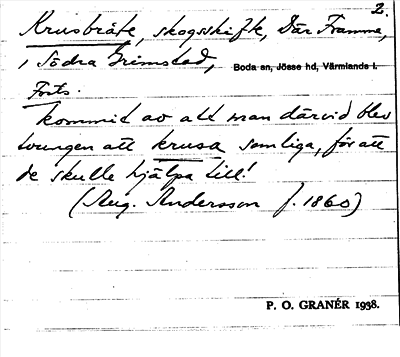 2.
Krusbråte, skogsskifte, Där Framme,
i Södra Grimstad, Boda sn, Jösse hd, Värmlands l.
Forts.
kommit av att man därvid blev
tvungen att krusa somliga, för att
de skulle hjälpa till!
(Aug. Andersson f. 1860)
P. O. GRANÉR 1938.